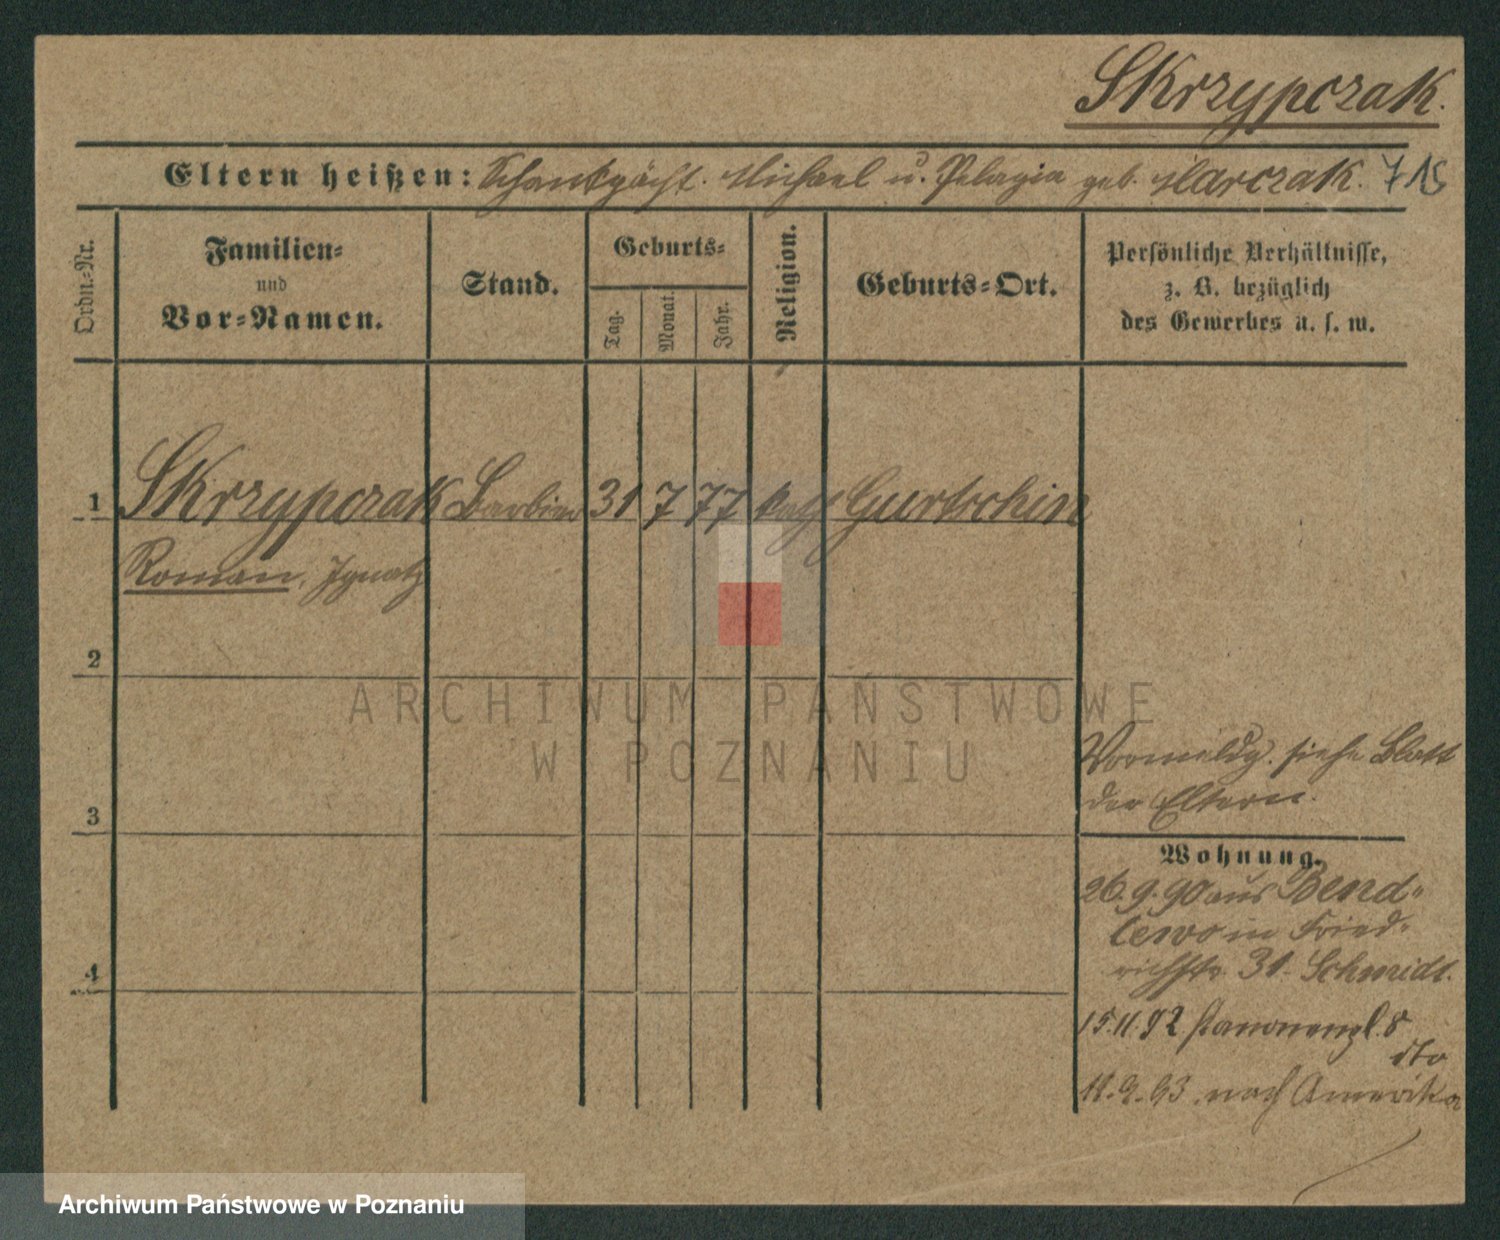 Skrzypczak.
Eltern heißen: Schankpächt. Michael u. Pelagia geb. Marczak. 715
Ordn.=Nr.
Familien=
und
Vor=Namen.
Stand.
Geburts=
Tag.
Monat.
Jahr.
Religion.
Geburts=Ort.
Persönliche Verhältnisse,
z. B. bezüglich
des Gewerbes u. s. w.
1 Skrzypczak Barbier 31 7 77 kath Gurtschin
Roman, Ignatz
2
ARCHIWUM PAŃSTWOWE
W POZNANIU
Vormeldg. siehe Blatt
der Eltern.
3
Wohnung.
26.9.90 aus Bend=
lewo in Fried=
richstr. 31. Schmidt.
4
15.11.92 8
dto
93 nach Amerika
Archiwum Państwowe w Poznaniu